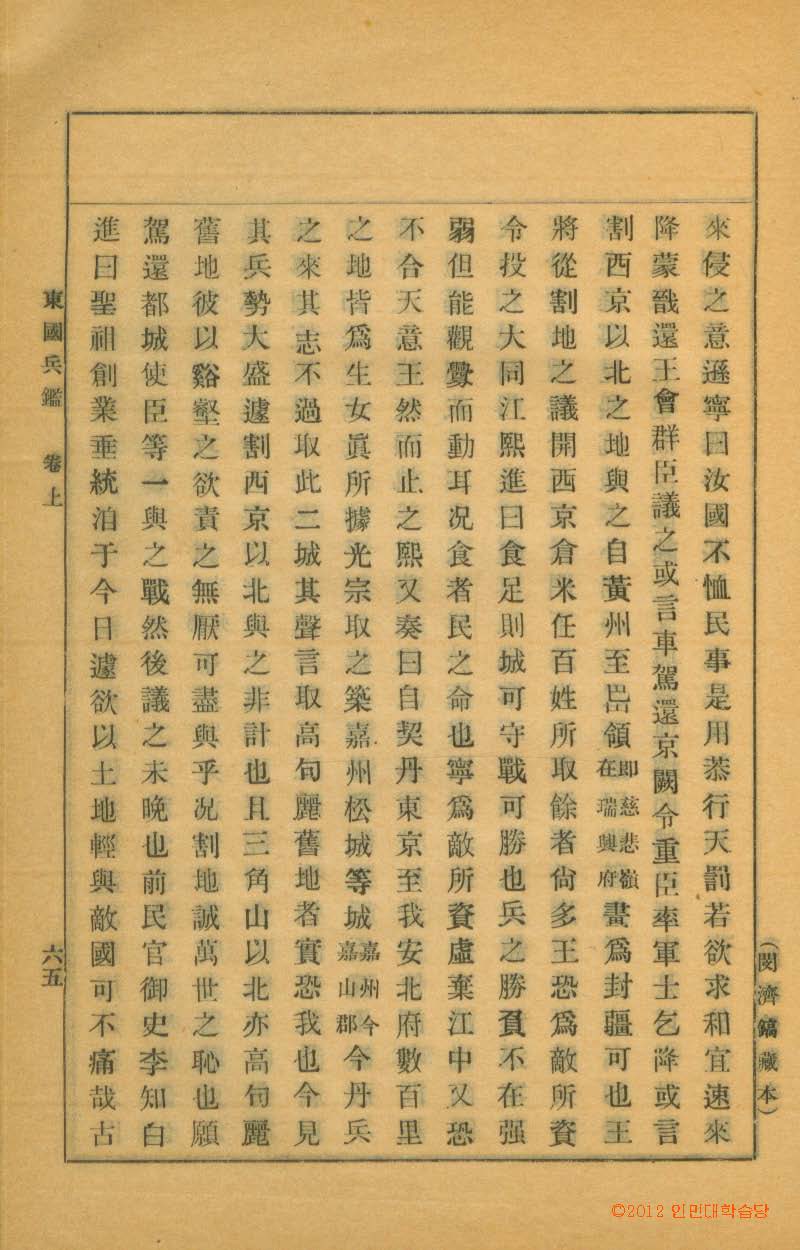 (閔濟鎬藏本)
來侵之意遜寧曰汝國不恤民事是用恭行天罰若欲求和宜速來
降蒙戩還王會群臣議之或言車駕還京闕令重臣率軍士乞降或言
割西京以北之地與之自黃州至岊領卽慈悲嶺在瑞興府畫爲封疆可也王
將從割地之議開西京倉米任百姓所取餘者尙多王恐爲敵所資
令投之大同江熙進曰食足則城可守戰可勝也兵之勝負不在强
弱但能觀釁而動耳况食者民之命也寧爲敵所資虛棄江中又恐
不合天意王然而止之熙又奏曰自契丹東京至我安北府數百里
之地皆爲生女眞所據光宗取之築嘉州松城等城嘉州今嘉山郡今丹兵
之來其志不過取此二城其聲言取高句麗舊地者實恐我也今見
其兵勢大盛遽割西京以北與之非計也且三角山以北亦高句麗
舊地彼以谿壑之欲責之無厭可盡與乎况割地誠萬世之恥也願
駕還都城使臣等一與之戰然後議之未晩也前民官御史李知白
進曰聖祖創業垂統洎于今日遽欲以土地輕與敵國可不痛哉古
東國兵鑑 卷上 六五
©2012 인민대학습당